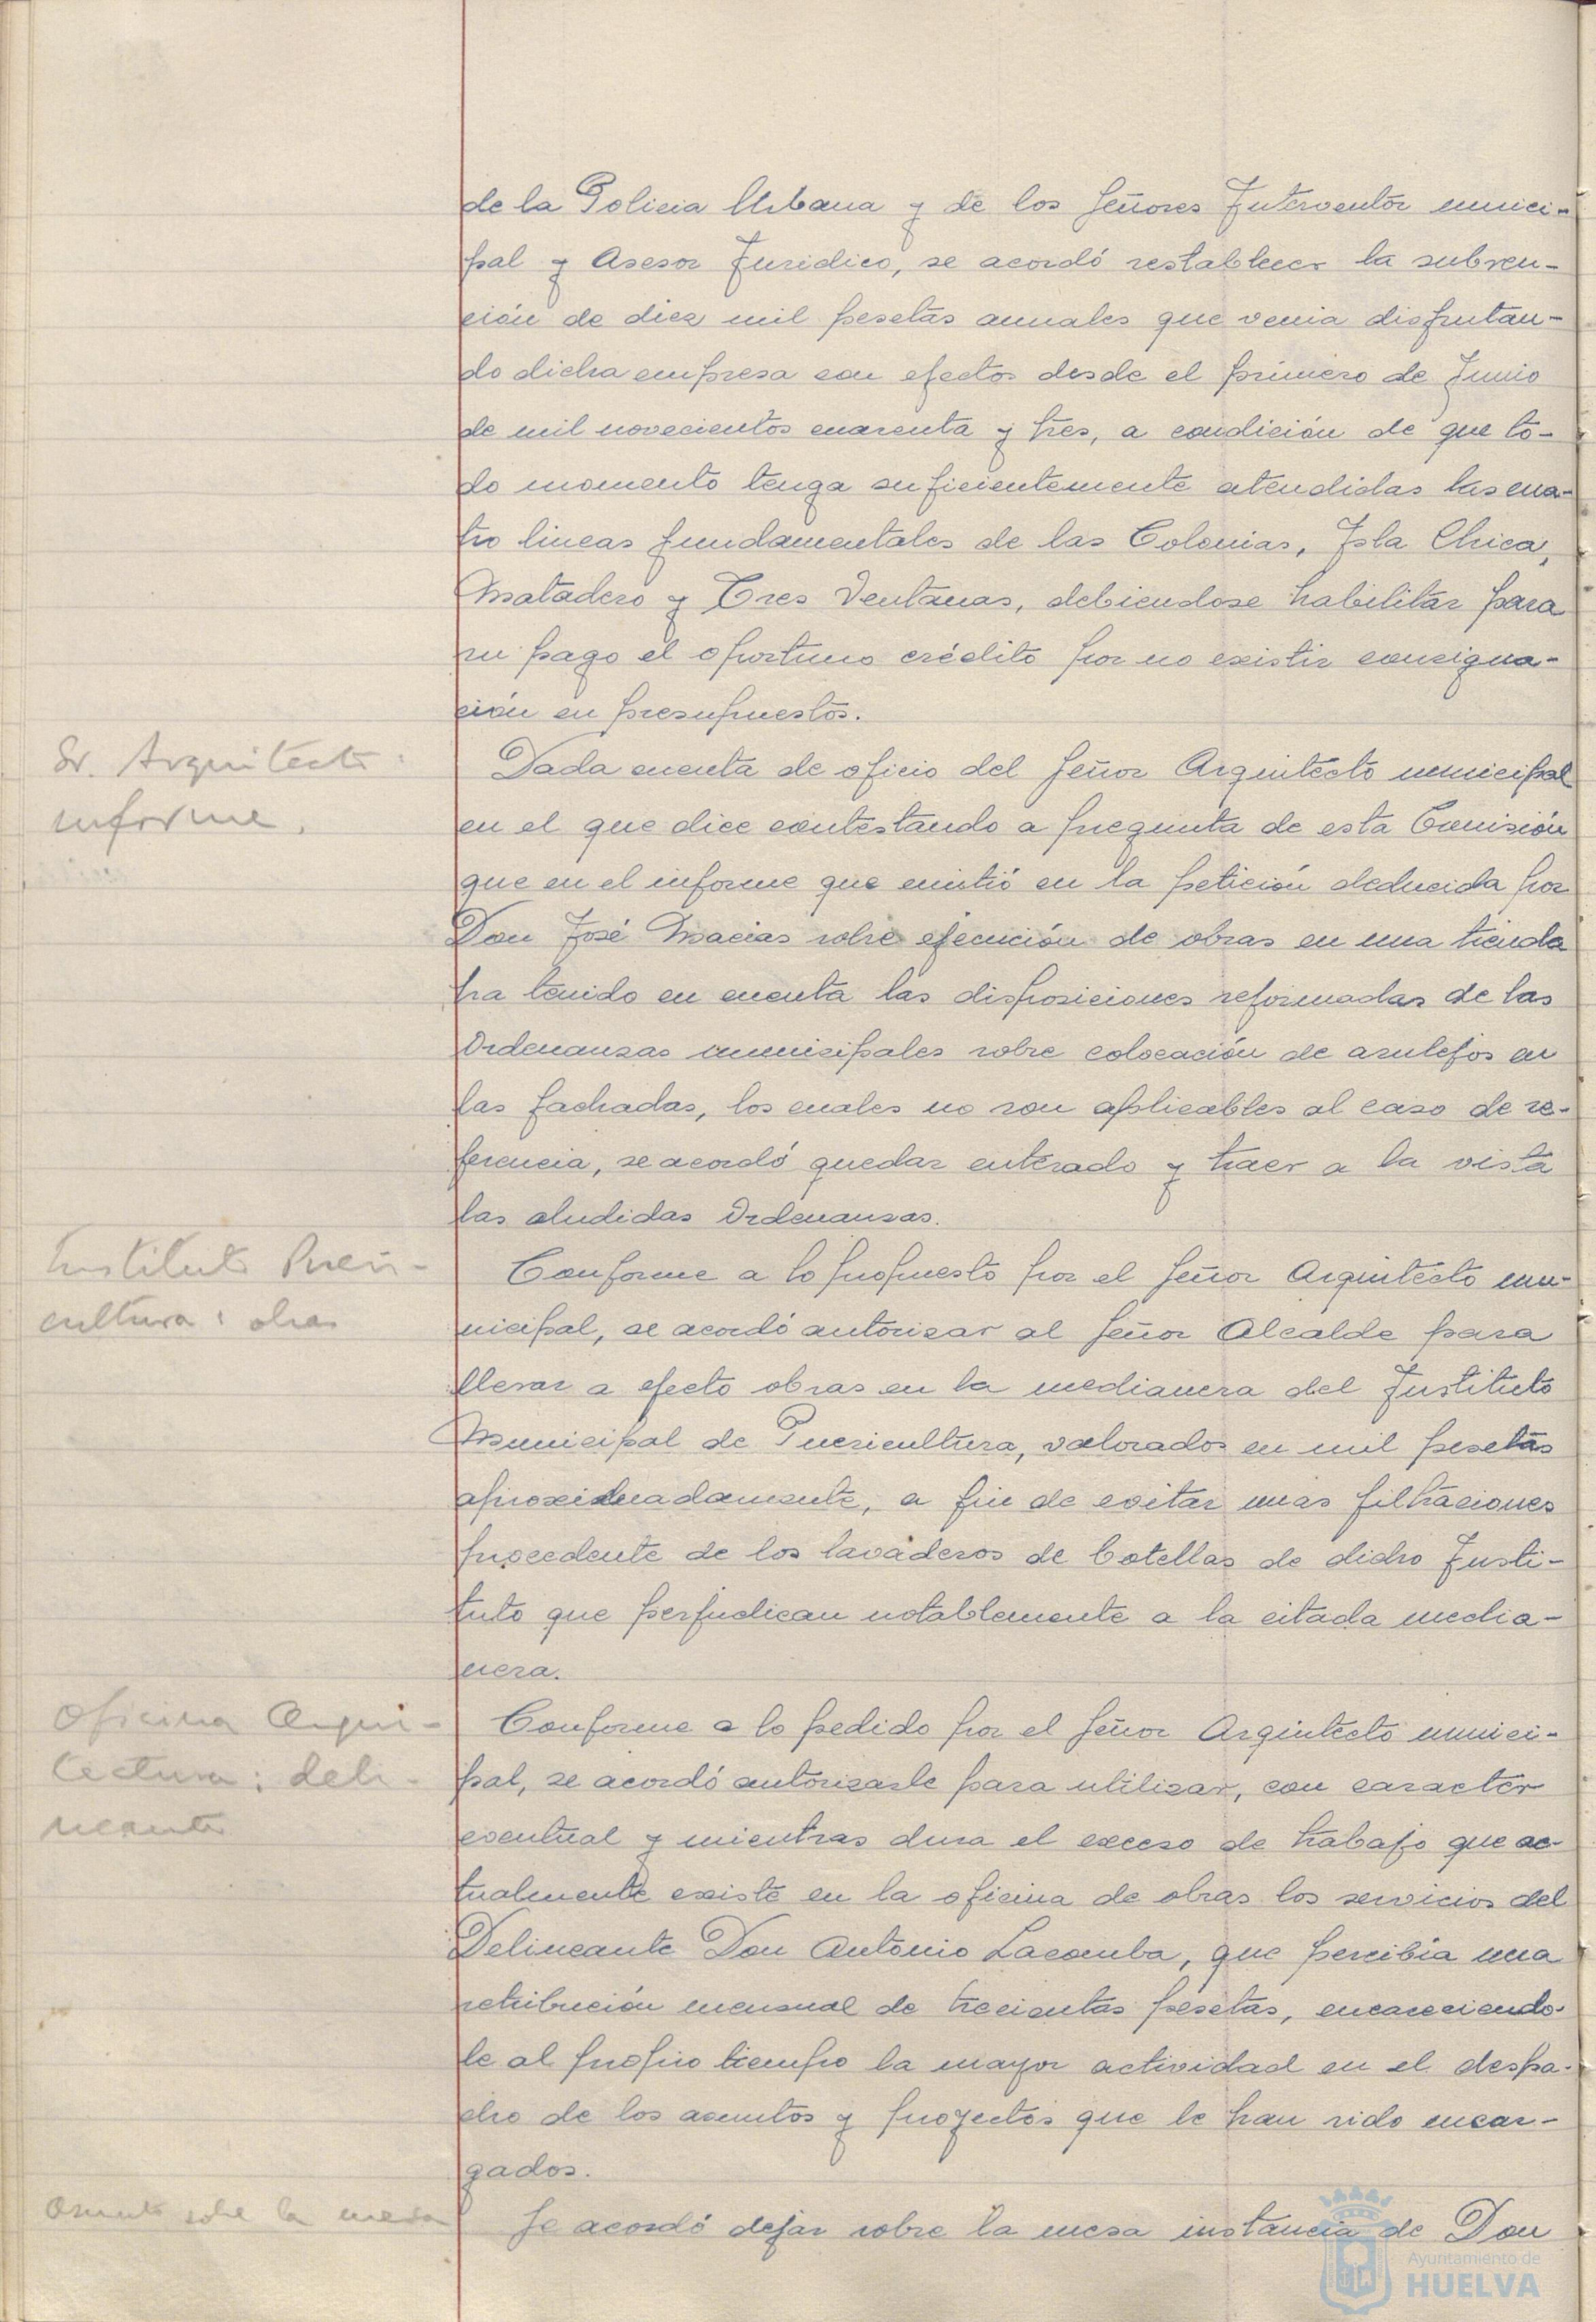 de la Policia Urbana y de los Señores Interventor munici-
pal y Asesor Juridico, se acordó restablecer la subven-
ción de diez mil pesetas anuales que venia disfrutan-
do dicha empresa con efectos desde el primero de Junio
de mil novecientos cuarenta y tres, a condición de que to-
do momento tenga suficientemente atendidas las cua-
tro lineas fundamentales de las Colonias, Isla Chica,
Matadero y Tres Ventanas, debiendose habilitar para
su pago el oportuno crédito por no existir consigna-
ción en presupuestos.
Sr. Arquitecto:
informe.
Dada cuenta de oficio del Señor Arquitecto municipal
en el que dice contestando a pregunta de esta Comisión
que en el informe que emitió en la petición deducida por
Don José Macias sobre ejecución de obras en una tienda
ha tenido en cuenta las disposiciones reformadas de las
Ordenanzas municipales sobre colocación de azulejos en
las fachadas, los cuales no son aplicables al caso de re-
ferencia, se acordó quedar enterado y traer a la vista
las aludidas Ordenanzas.
Instituto Pueri-
cultura: obras
Conforme a lo propuesto por el Señor Arquitecto mu-
nicipal, se acordó autorizar al Señor Alcalde para
llevar a efecto obras en la medianera del Instituto
Municipal de Puericultura, valorados en mil pesetas
aproximadamente, a fin de evitar unas filtraciones
procedente de los lavaderos de botellas de dicho Insti-
tuto que perjudican notablemente a la citada media-
nera.
Oficina Arqui-
tectura: deli-
neante
Conforme a lo pedido por el Señor Arquitecto munici-
pal, se acordó autorizarle para utilizar, con caracter
eventual y mientras dura el exceso de trabajo que ac-
tualmente existe en la oficina de obras los servicios del
Delineante Don Antonio Lacomba, que percibía una
retribución mensual de trecientas pesetas, encareciendo-
le al propio tiempo la mayor actividad en el despa-
cho de los asuntos y proyectos que le han sido encar-
gados.
Asunto sobre la mesa
Se acordó dejar sobre la mesa instancia de Don
Ayuntamiento de
HUELVA